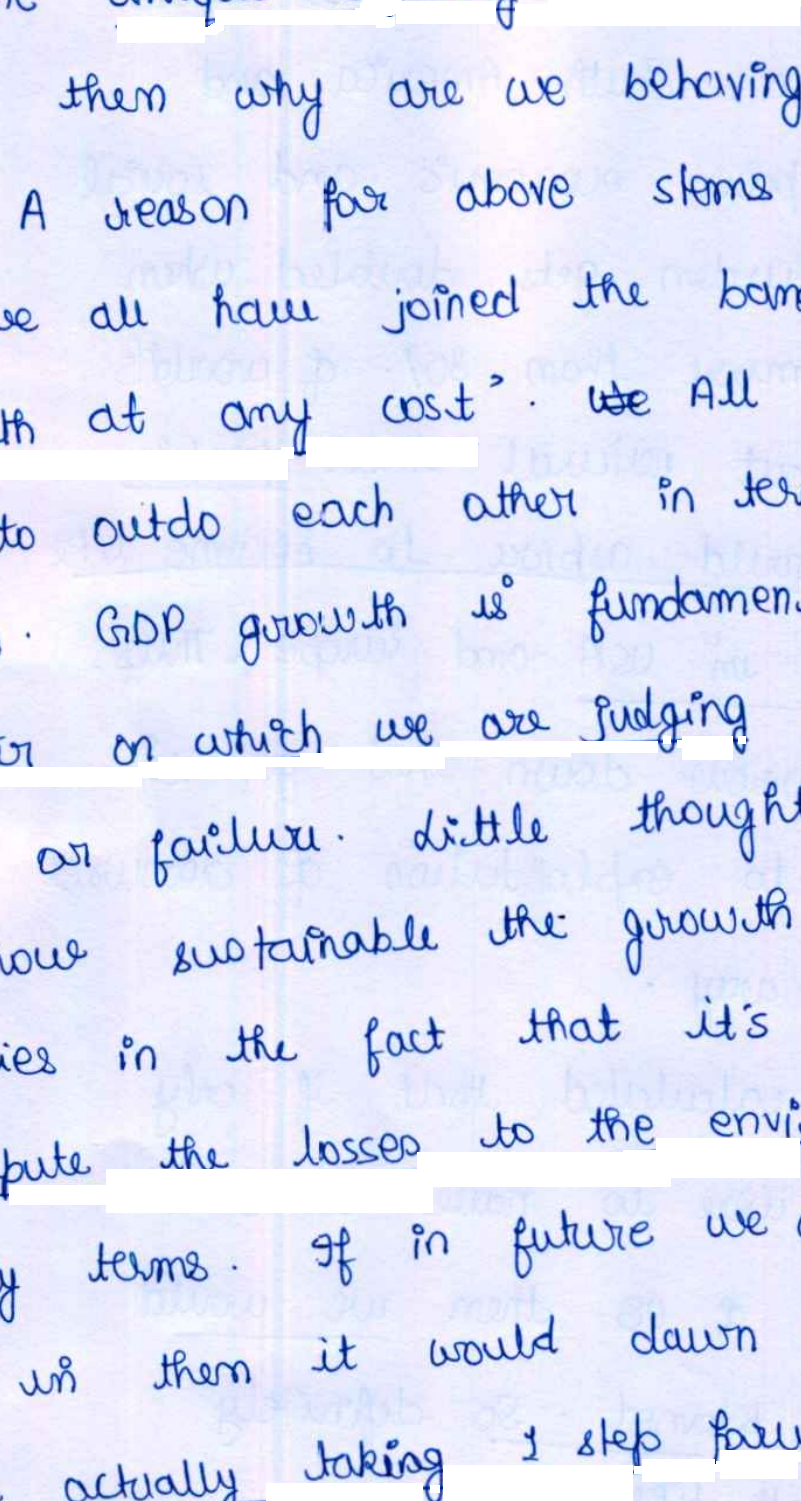 then why are we behaving
A reason for above stems
all have joined the
at any cost'. We All
to outdo each other in
. GDP growth is
on which we are judging
or failure. Little thought
sustainable the growth
in the fact that it's
the losses to the
terms. If in future we
in then it would dawn
actually taking 1 step